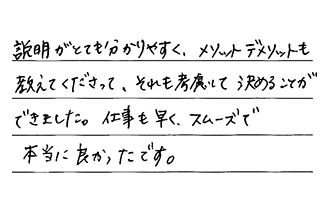 説明がとても分かりやすく、メリットデメリットも
教えてくださって、それも考慮して決めることが
できました。仕事も早く、スムーズで
本当に良かったです。